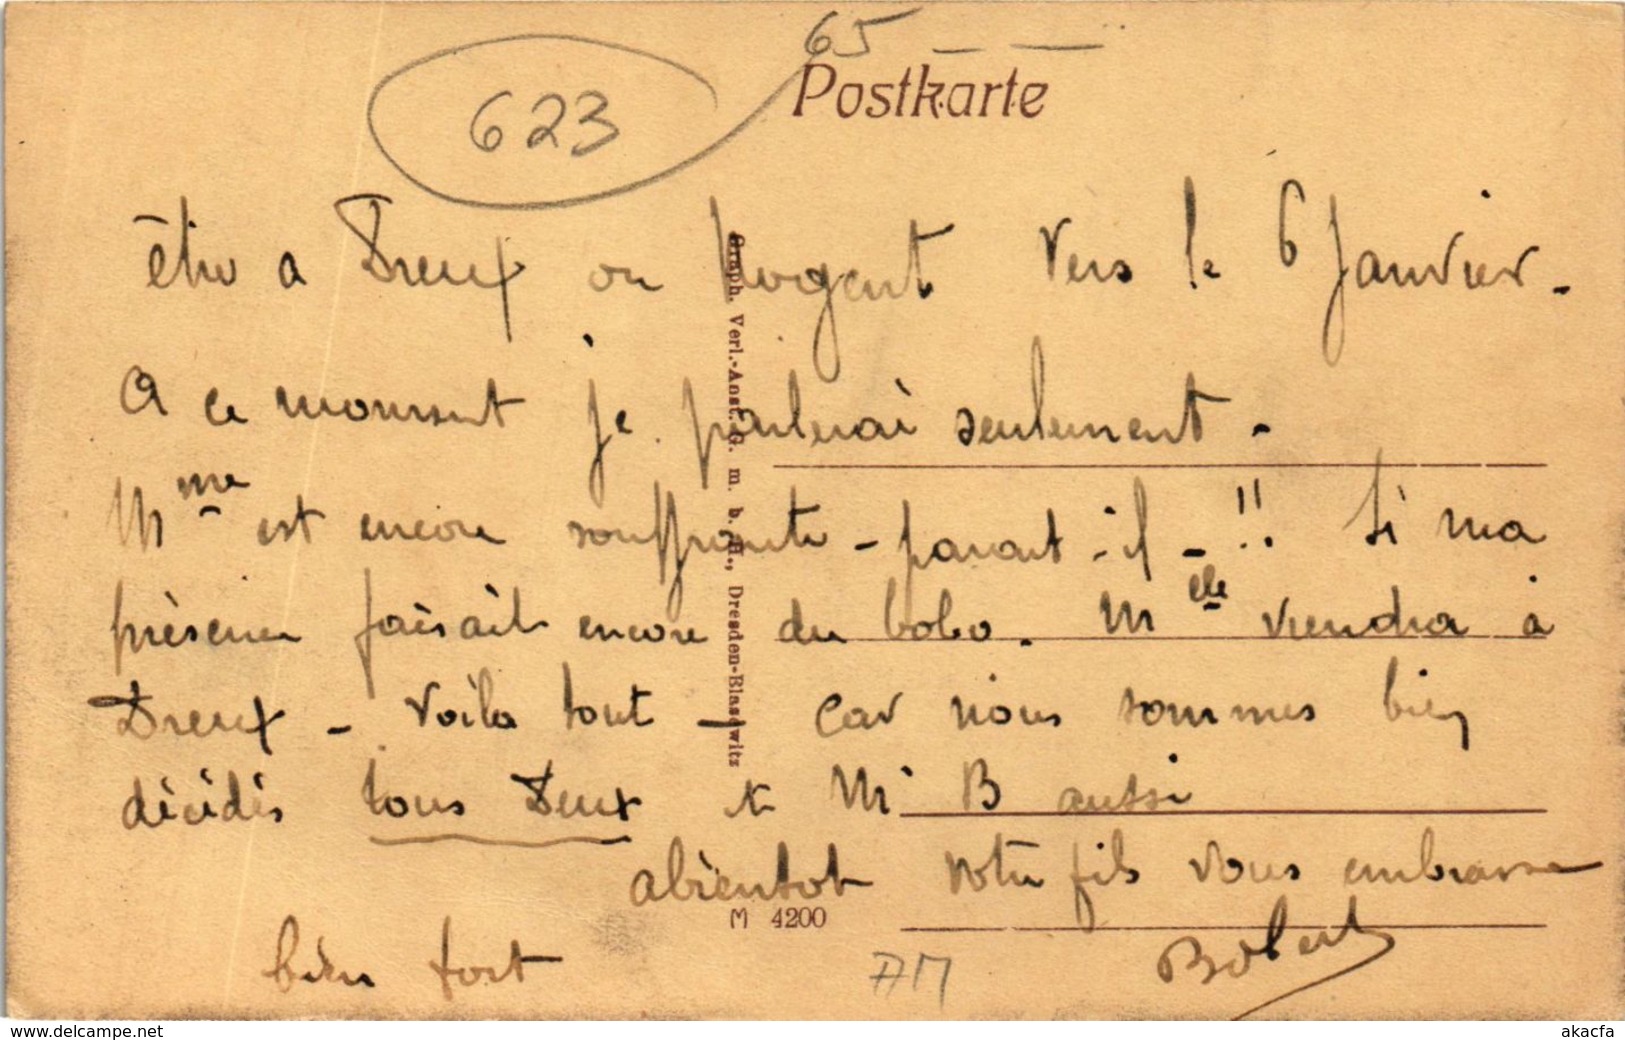 65
623
Postkarte
être a Dreux ou Nogent vers le 6 Janvier.
A ce moment je parlerai seulement.
Mme est encore souffrante - parait-il - !! Si ma
présence faisait encore du bobo. Melle viendra à
Dreux - Voila tout - Car nous sommes bien
décidés tous Deux et Mr B aussi
abientot votre fils vous embrasse
bien fort
Robert
Graph. Verl.-Anst. G. m. b. H., Dresden-Blasewitz
M 4200
AM
www.delcampe.net
akacfa